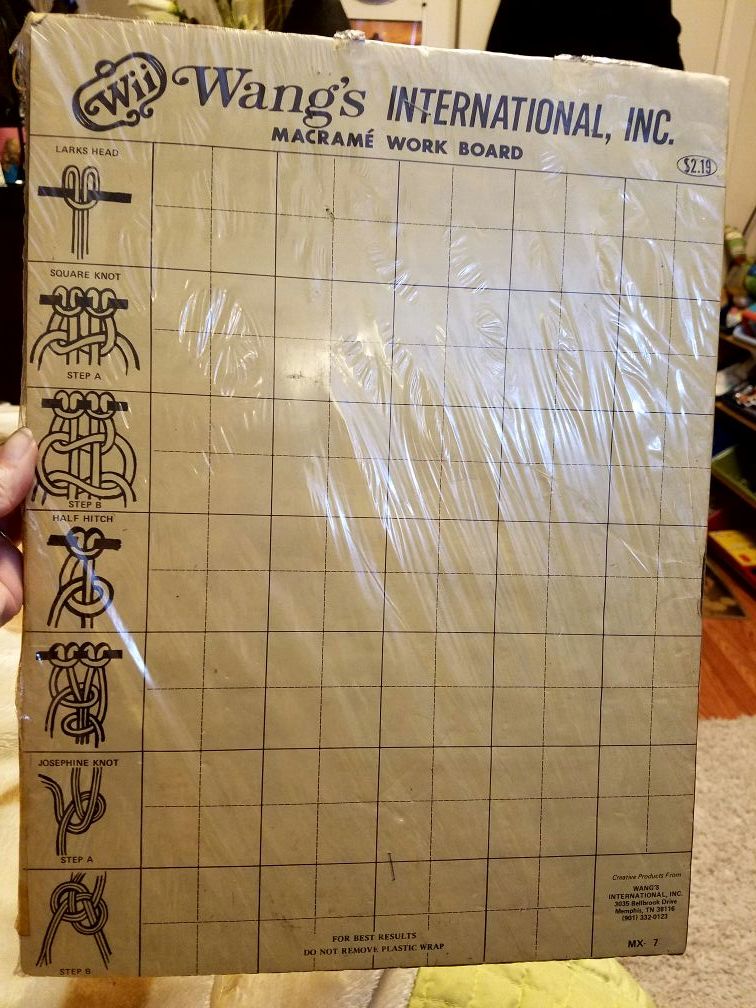 Wii Wang's INTERNATIONAL, INC.
MACRAMÉ WORK BOARD
$2.19
LARKS HEAD
SQUARE KNOT
STEP A
STEP B
HALF HITCH
JOSEPHINE KNOT
STEP A
STEP B
FOR BEST RESULTS
DO NOT REMOVE PLASTIC WRAP
Creative Products From
WANG'S
INTERNATIONAL, INC.
3035 Bellbrook Drive
Memphis, TN 38116
(901) 332-0123
MX- 7